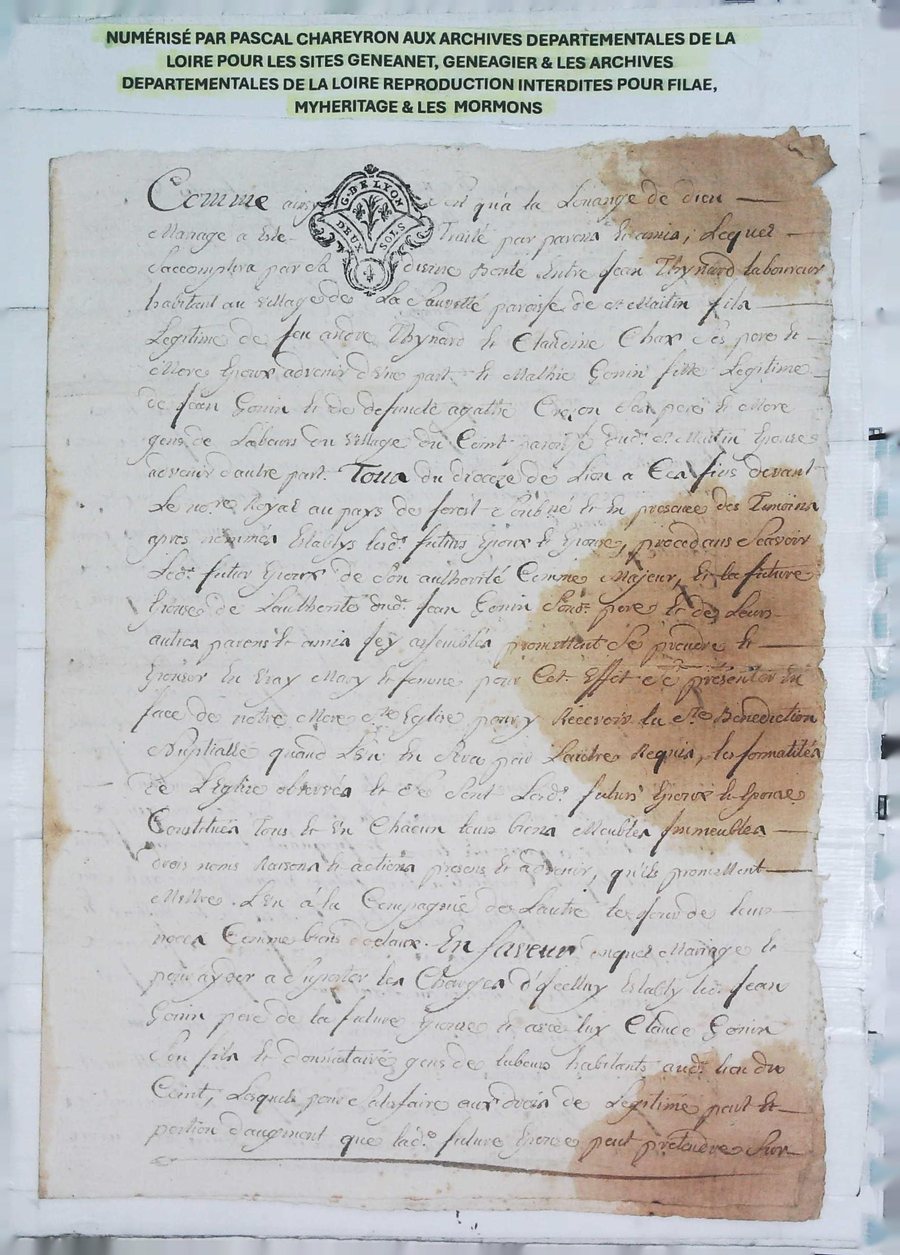 NUMÉRISÉ PAR PASCAL CHAREYRON AUX ARCHIVES DEPARTEMENTALES DE LA
LOIRE POUR LES SITES GENEANET, GENEAGIER & LES ARCHIVES
DEPARTEMENTALES DE LA LOIRE REPRODUCTION INTERDITES POUR FILAE,
MYHERITAGE & LES MORMONS
G. DE LYON
DEUX SOLS
Comme ainsy soit qu'a la Louange de dieu
Mariage a esté Traité par parens et amis, Lequel
Saccomplira par sa divine Bonté Entre Jean Thynard laboureur
habitant au village de La Sauveté paroisse de st Martin fils
Legitime de feu andre Thynard et Claudine Chax ses pere et
Mere Epoux advenir d'une part et Mathie Gonin fille Legitime
de Jean Gonin et de defuncte agathe son pere et Mere
gens de Labeurs du village du Coint paroisse dud. st Martin Epouse
advenir d'autre part. Tous du diocèze de Lion a Ces fins devant
Le nore Royal au pays de forest soubné et en presence des Temoins
apres nommés Establys lesd. futurs Epoux et Epouse, procedans scavoir
Led. futur Epoux de son authorité Comme Majeur, et la future
Epouse de Lauthorité dud. Jean Gonin sond. pere et de Leurs
autres parens et amis Jcy assemblés promettent se prendre et
Epouser En vray Mary et femme pour Cet Effet se presenter En
face de notre Mere ste Eglise pour y Recevoir la ste Benediction
Nuptialle quand L'un En sera par Lautre Requis, les formalités
de L'Eglise observés et se sont Lesd. futurs Epoux et Epouse
Constitués Tous et un Chacun leurs biens Meubles Immeubles
drois noms Raisons et actions presens et advenir, qu'ils promettent
Mettre L'un à la Compagnie de Lautre le jour de leurs
noces Comme biens dotaux. En faveur duquel Mariage et
pour ayder a suporter les Charges d'Jcelluy Estably led. Jean
Gonin pere de la future Epouse et avec luy Claude Gonin
son fils et donnataire gens de labeurs habitants aud. lieu du
Coint, Lesquels pour satisfaire aux drois de Legitime part et
portion d'augment que lad. future Epouse peut pretendre sur